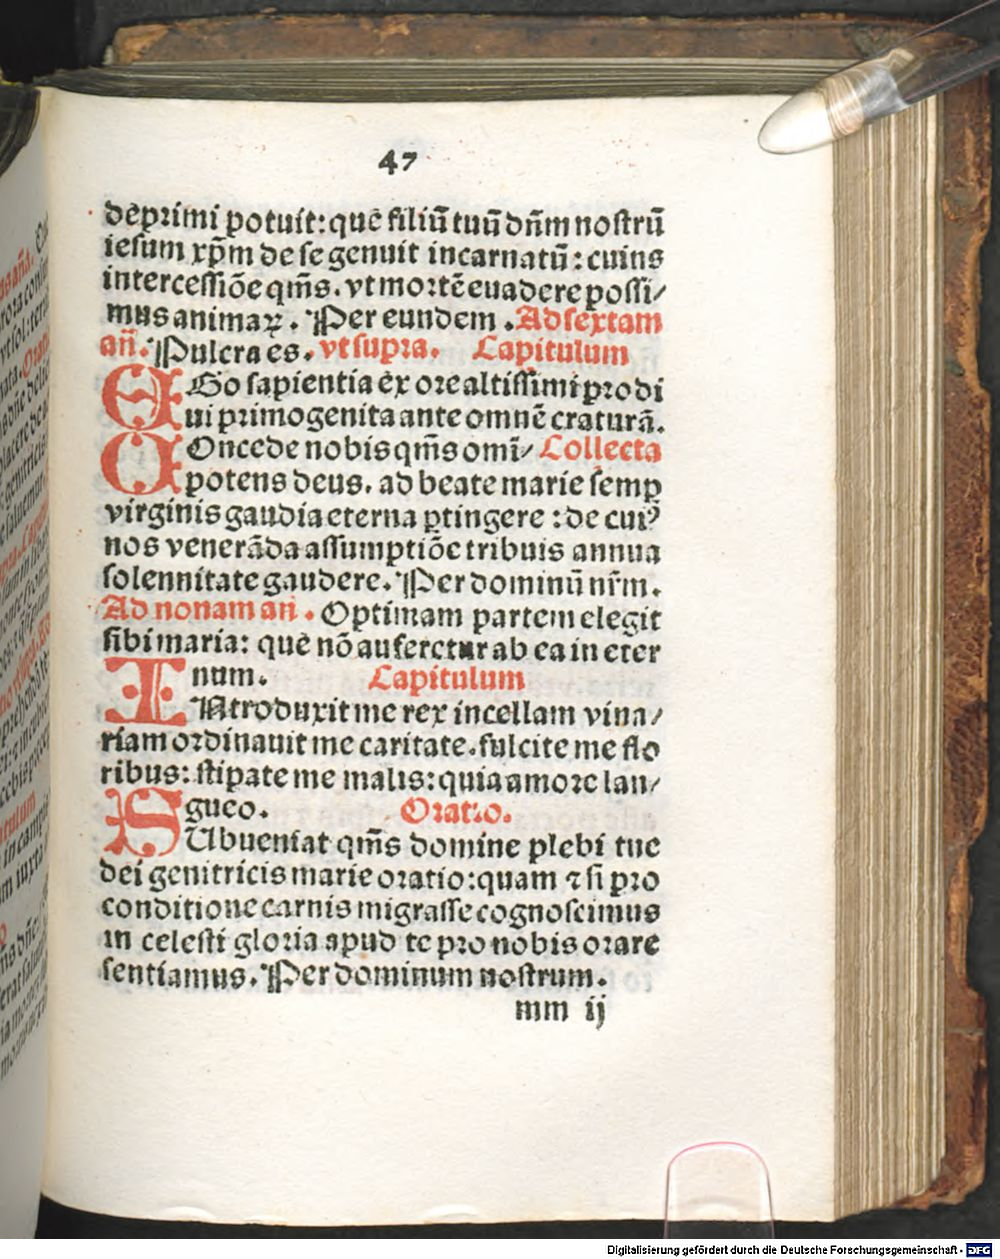 47
deprimi potuit: quē filiū tuū dn̄m nostrū
iesum xp̄m de se genuit incarnatū: cuius
intercessiōe qm̄s. vt mortē euadere possi/
mus animaꝝ. Per eundem. Ad sextam
an̄. Pulcra es. vt supra. Capitulum
EGo sapientia ex ore altissimi prodi
ui primogenita ante omnē craturā.
COncede nobis qm̄s omī/ Collecta
potens deus. ad beate marie semꝑ
virginis gaudia eterna ꝑtingere: de cuiꝰ
nos venerāda assumptiōe tribuis annua
solennitate gaudere. Per dominū nr̄m.
Ad nonam an̄. Optimam partem elegit
sibi maria: quē nō auferetur ab ea in eter
num. Capitulum
INtroduxit me rex in cellam vina/
riam ordinauit me caritate. fulcite me flo
ribus: stipate me malis: quia amore lan/
gueo. Oratio.
SUbueniat qm̄s domine plebi tue
dei genitricis marie oratio: quam ⁊ si pro
conditione carnis migrasse cognoscimus
in celesti gloria apud te pro nobis orare
sentiamus. Per dominum nostrum.
mm ij
Digitalisierung gefördert durch die Deutsche Forschungsgemeinschaft - DFG